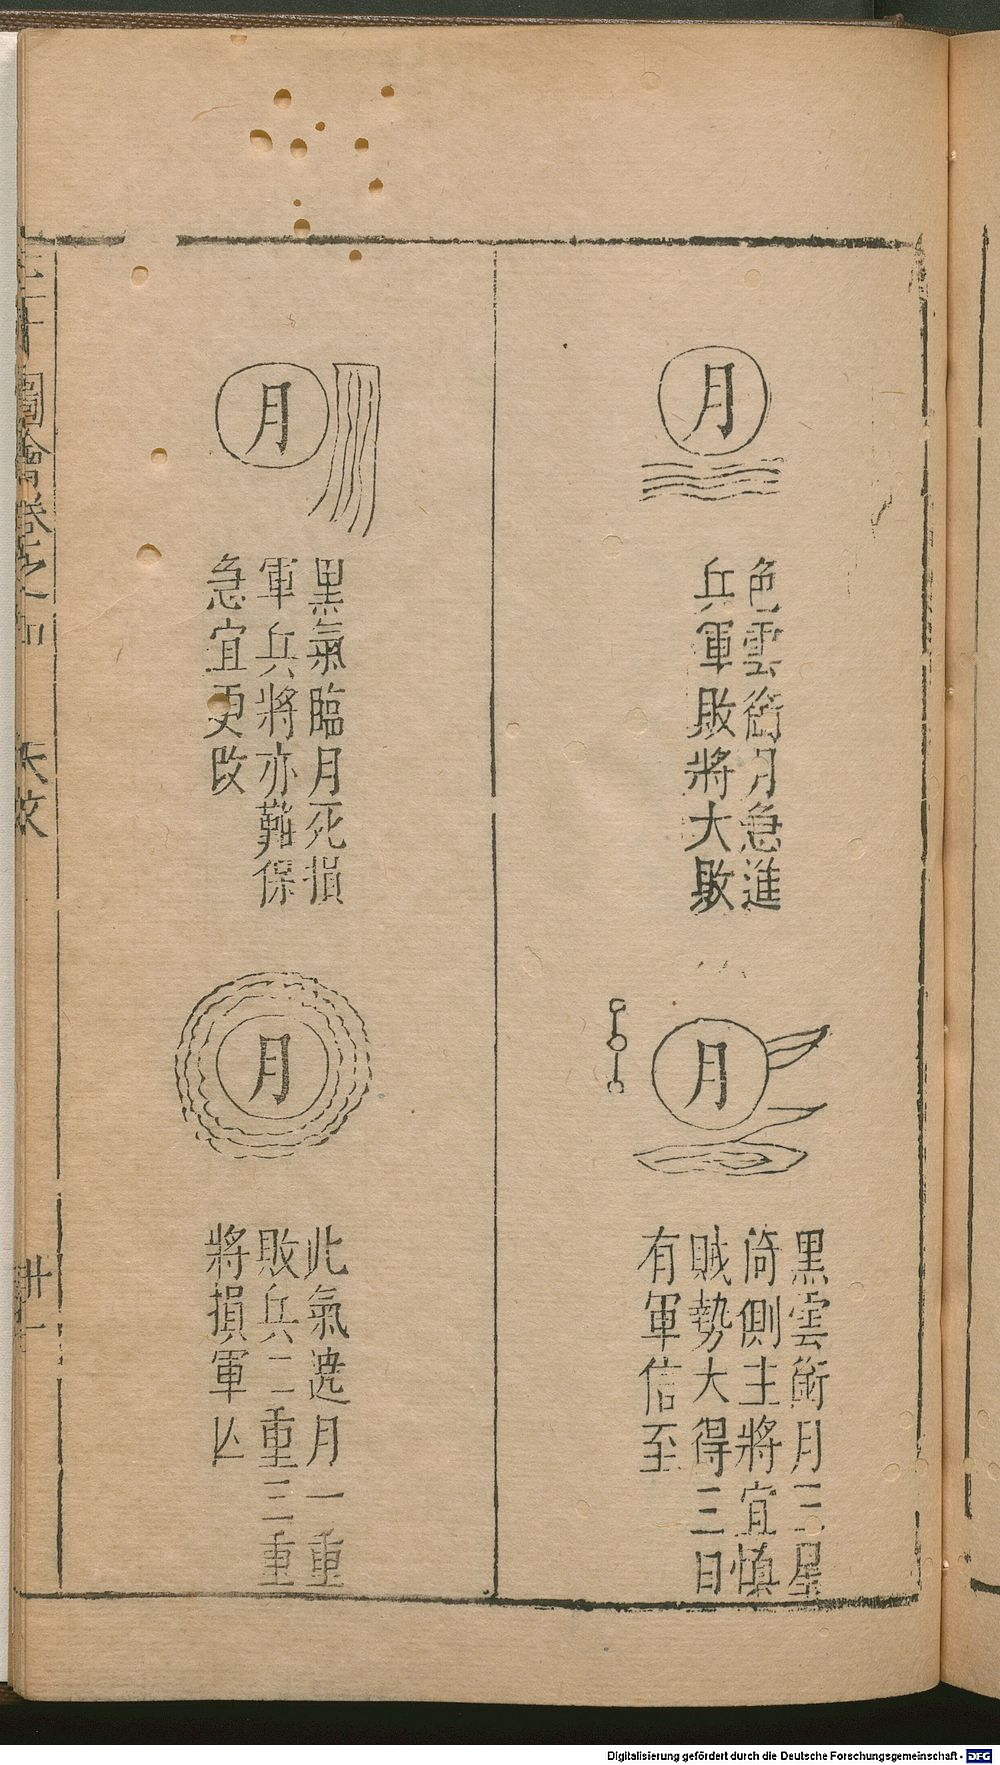 月
色雲銜月急進
兵軍敗將大敗
月
黑雲銜月三星
倚側主將宜慎
賊勢大得三日
有軍信至
月
黑氣臨月死損
軍兵將亦難保
急宜更改
月
此氣遶月一重
敗兵二重三重
將損軍亾
圖會卷之四 天文 卅一
Digitalisierung gefördert durch die Deutsche Forschungsgemeinschaft - DFG